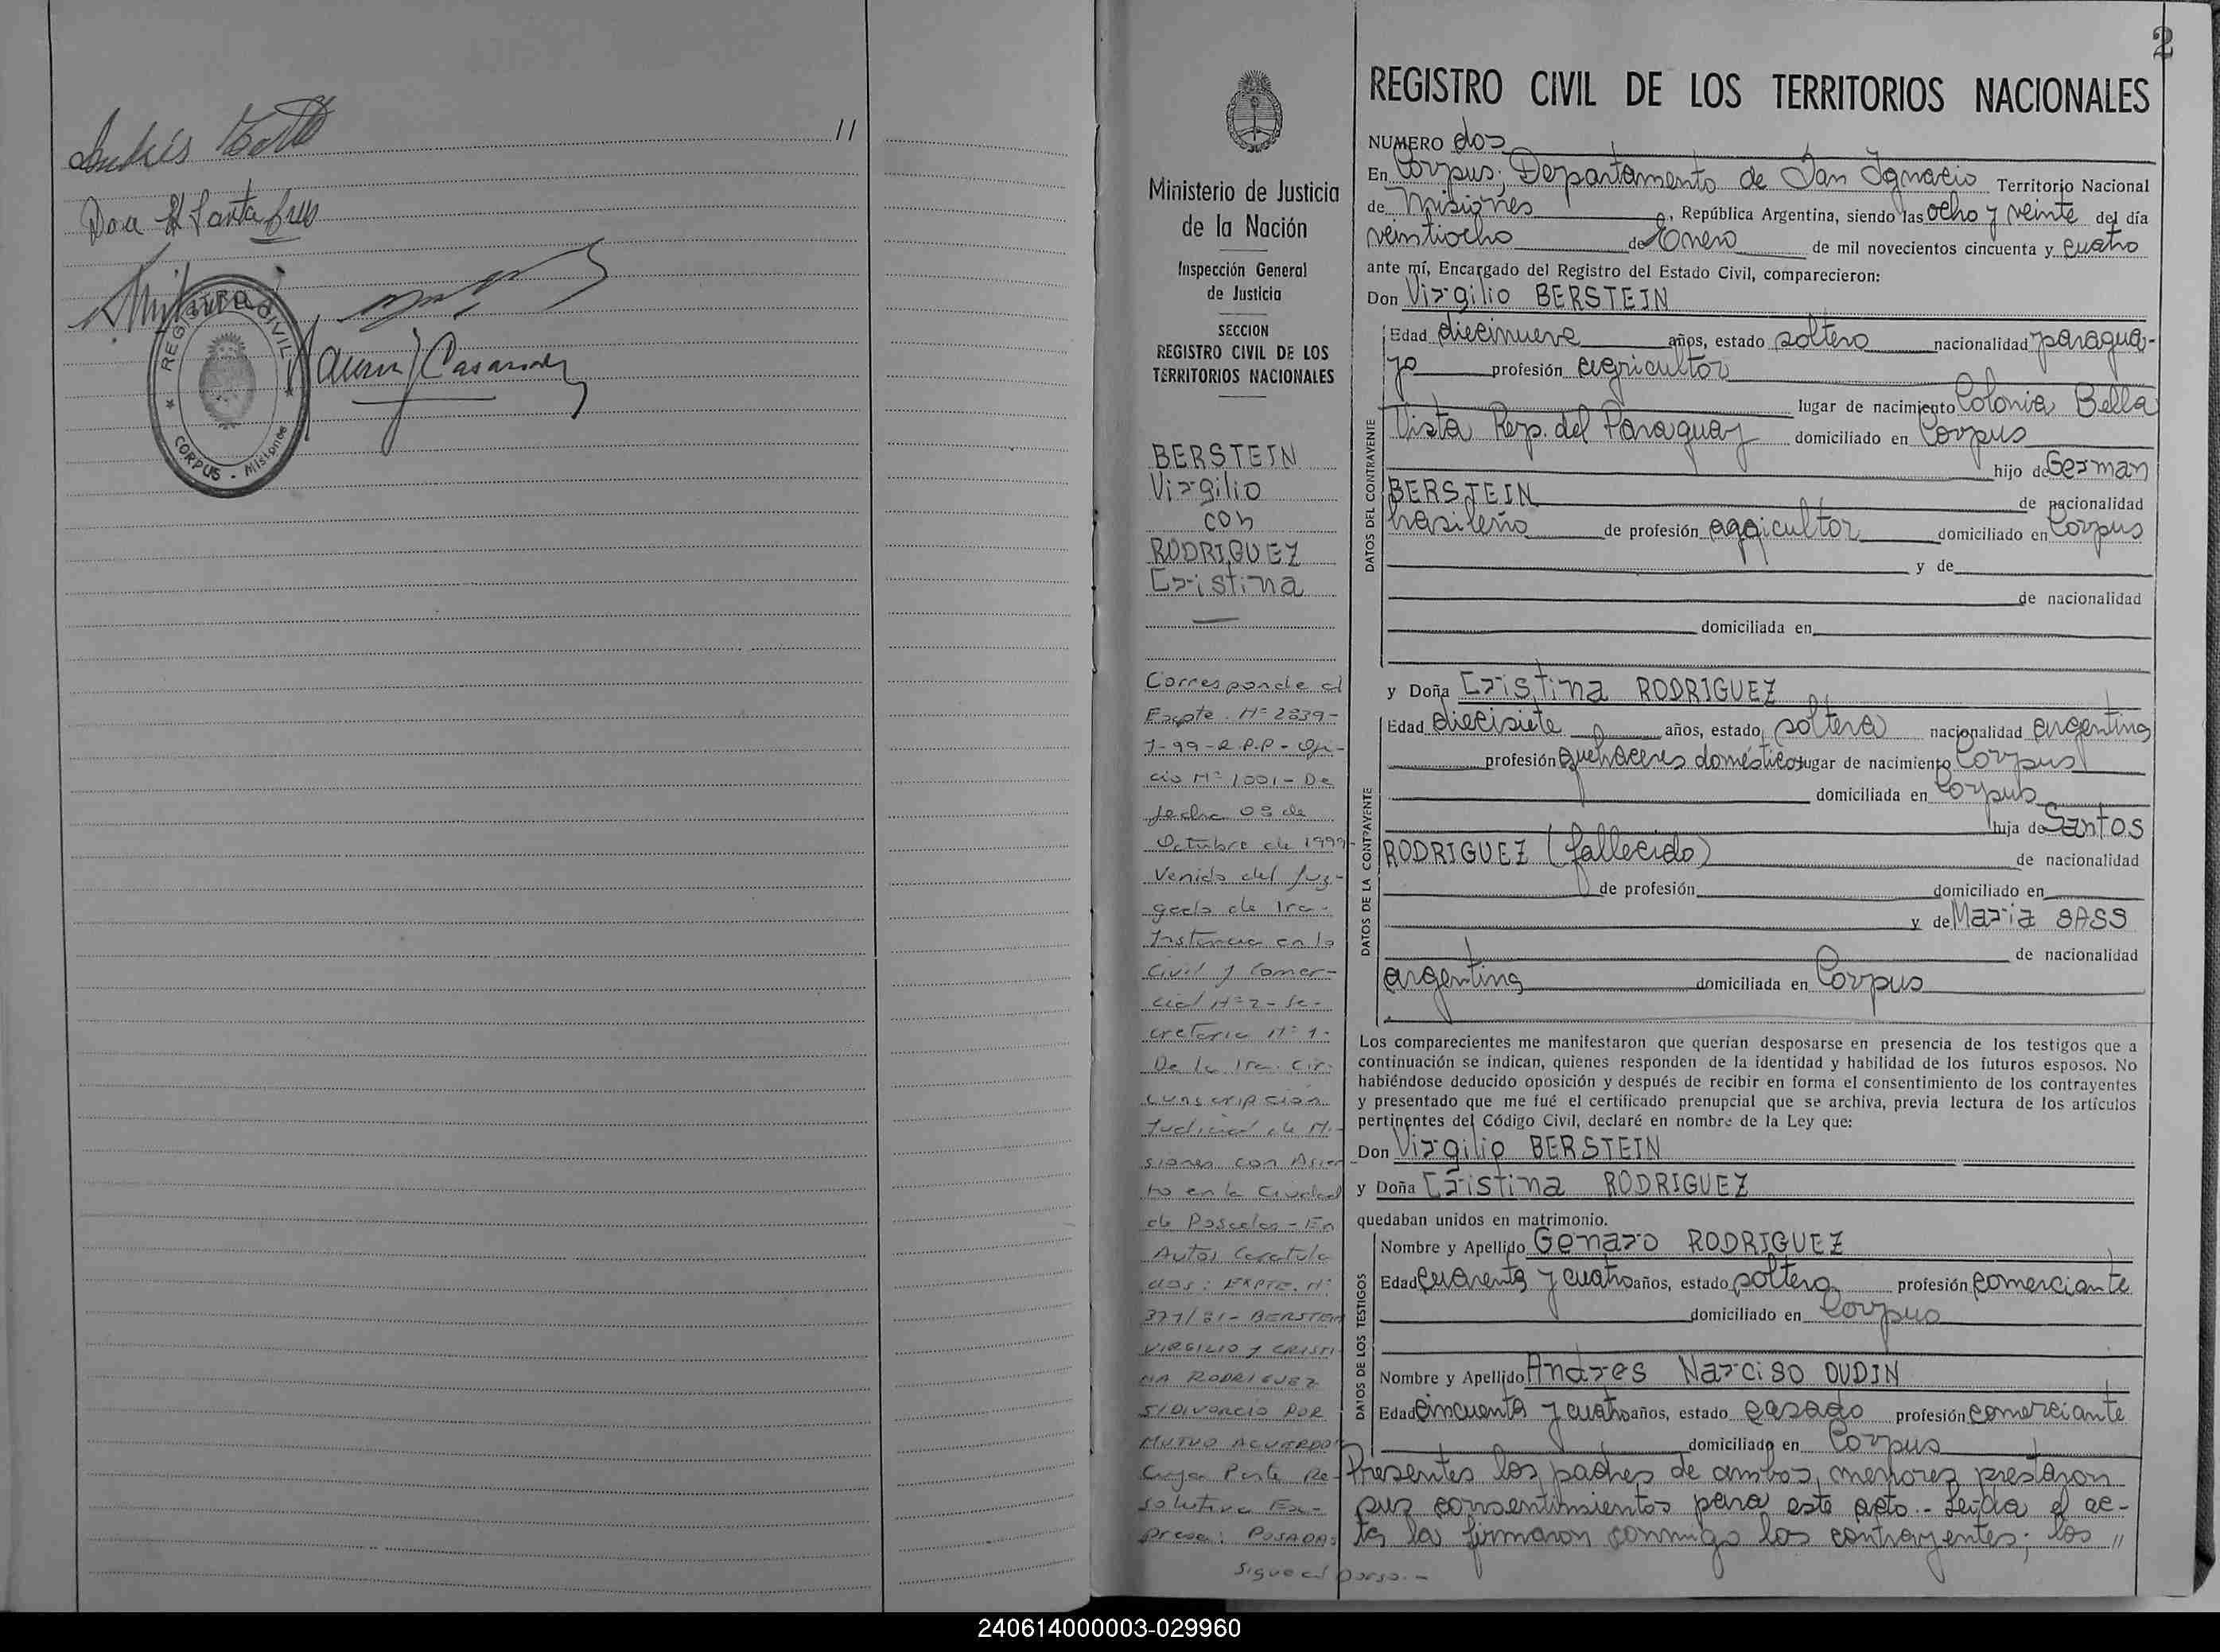 11
Andrés
Dora
REGISTRO CIVIL
CORPUS - Misiones
2
REGISTRO CIVIL DE LOS TERRITORIOS NACIONALES
Ministerio de Justicia
de la Nación
Inspección General
de Justicia
SECCION
REGISTRO CIVIL DE LOS
TERRITORIOS NACIONALES
BERSTEIN
Virgilio
con
RODRIGUEZ
Cristina
Corresponde al
Expte. Nº 2839-
J-99-R.P.P- Ofi-
cio Nº 1001- De
fecha 03 de
Octubre de 1999-
Venido del Juz-
gado de 1ra.
Instancia en lo
Civil y Comer-
cial Nº 2- Se-
cretaria Nº 1-
De la 1ra. Cir-
cunscripción
Judicial de Mi-
siones con Asien
to en la Ciudad
de Posadas- En
Autos Caratula
dos: EXPTE. Nº
371/81- BERSTEIN
VIRGILIO y CRISTI
NA RODRIGUEZ
S/DIVORCIO POR
MUTUO ACUERDO
Cuya Parte Re-
solutiva Ex-
presa: POSADAS
Sigue al dorso.-
NUMERO dos
En Corpus; Departamento de San Ignacio Territorio Nacional
de Misiones, República Argentina, siendo las ocho y veinte del día
veintiocho de Enero de mil novecientos cincuenta y cuatro
ante mí, Encargado del Registro del Estado Civil, comparecieron:
Don Virgilio BERSTEIN
DATOS DEL CONTRAYENTE
Edad diecinueve años, estado soltero nacionalidad paragua-
yo profesión agricultor
lugar de nacimiento Colonia Bella
Vista Rep. del Paraguay domiciliado en Corpus
hijo de German
BERSTEIN de nacionalidad
brasileño de profesión agricultor domiciliado en Corpus
y de
de nacionalidad
domiciliada en
y Doña Cristina RODRIGUEZ
DATOS DE LA CONTRAYENTE
Edad diecisiete años, estado soltera nacionalidad argentina
profesión quehaceres domésticos lugar de nacimiento Corpus
domiciliada en Corpus
hija de Santos
RODRIGUEZ (fallecido) de nacionalidad
de profesión domiciliado en
y de Maria SASS
de nacionalidad
argentina domiciliada en Corpus
Los comparecientes me manifestaron que querían desposarse en presencia de los testigos que a
continuación se indican, quienes responden de la identidad y habilidad de los futuros esposos. No
habiéndose deducido oposición y después de recibir en forma el consentimiento de los contrayentes
y presentado que me fué el certificado prenupcial que se archiva, previa lectura de los artículos
pertinentes del Código Civil, declaré en nombre de la Ley que:
Don Virgilio BERSTEIN
y Doña Cristina RODRIGUEZ
quedaban unidos en matrimonio.
DATOS DE LOS TESTIGOS
Nombre y Apellido Genaro RODRIGUEZ
Edad cuarenta y cuatro años, estado soltero profesión comerciante
domiciliado en Corpus
Nombre y Apellido Andres Narciso OUDIN
Edad cincuenta y cuatro años, estado casado profesión comerciante
domiciliado en Corpus
Presentes los padres de ambos, menores prestaron
sus consentimientos para este acto.- Leída el ac-
ta la firmaron conmigo los contrayentes; los //
240614000003-029960